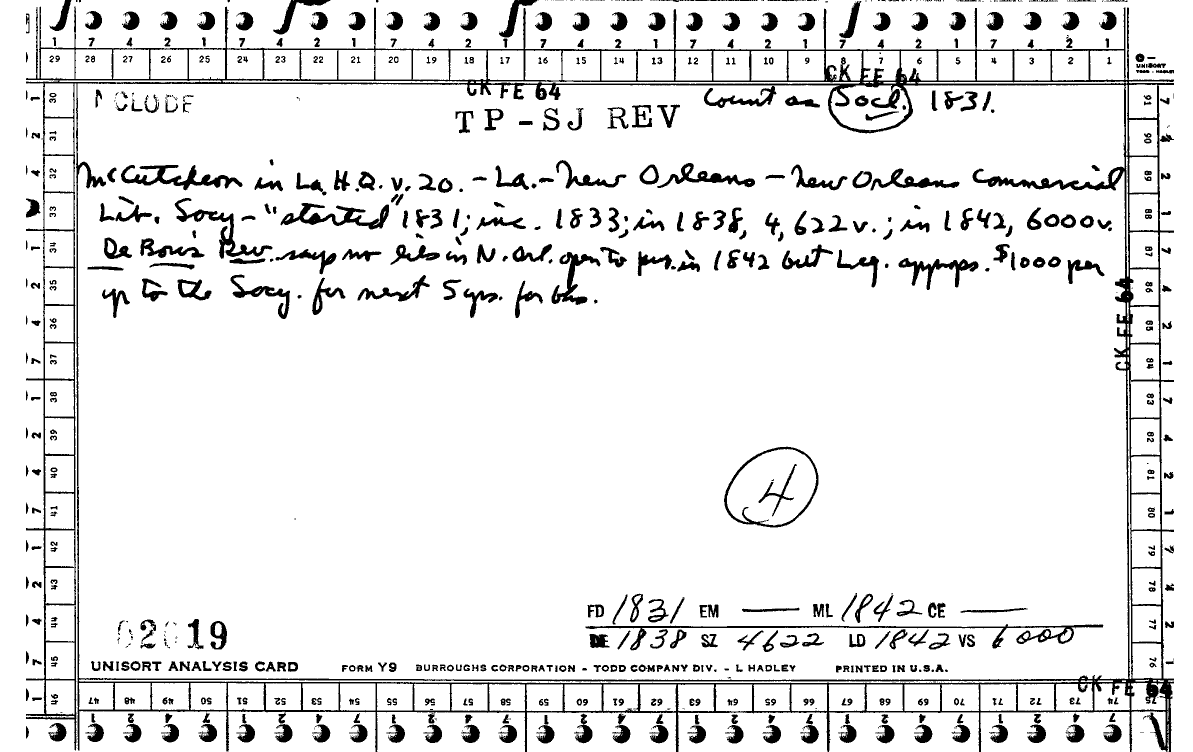 1 7 4 2 1 7 4 2 1 7 4 2 1 7 4 2 1 7 4 2 1 7 4 2 1 7 4 2 1
29 28 27 26 25 24 23 22 21 20 19 18 17 16 15 14 13 12 11 10 9 8 7 6 5 4 3 2 1
UNISORT
TODD - HADLEY
CK FE 64
CK FE 64
CLODE
Count as Socl. 1831.
TP-SJ REV
McCutcheon in La. H.Q. v. 20. - La. - New Orleans - New Orleans Commercial
Lib. Socy - "started" 1831; inc. 1833; in 1838, 4,622 v.; in 1842, 6000 v.
De Bow's Rev. says no libs in N. Orl. open to pub. in 1842 but Leg. approps. $1000 per
yr to the Socy. for next 5 yrs. for bks.
CK FE 64
4
FD 1831 EM — ML 1842 CE —
DE 1838 SZ 4622 LD 1842 VS 6000
02019
UNISORT ANALYSIS CARD FORM Y9 BURROUGHS CORPORATION - TODD COMPANY DIV. - L HADLEY PRINTED IN U.S.A.
CK FE 64
30 31 32 33 34 35 36 37 38 39 40 41 42 43 44 45 46
91 90 89 88 87 86 85 84 83 82 81 80 79 78 77 76 75
47 48 49 50 51 52 53 54 55 56 57 58 59 60 61 62 63 64 65 66 67 68 69 70 71 72 73 74